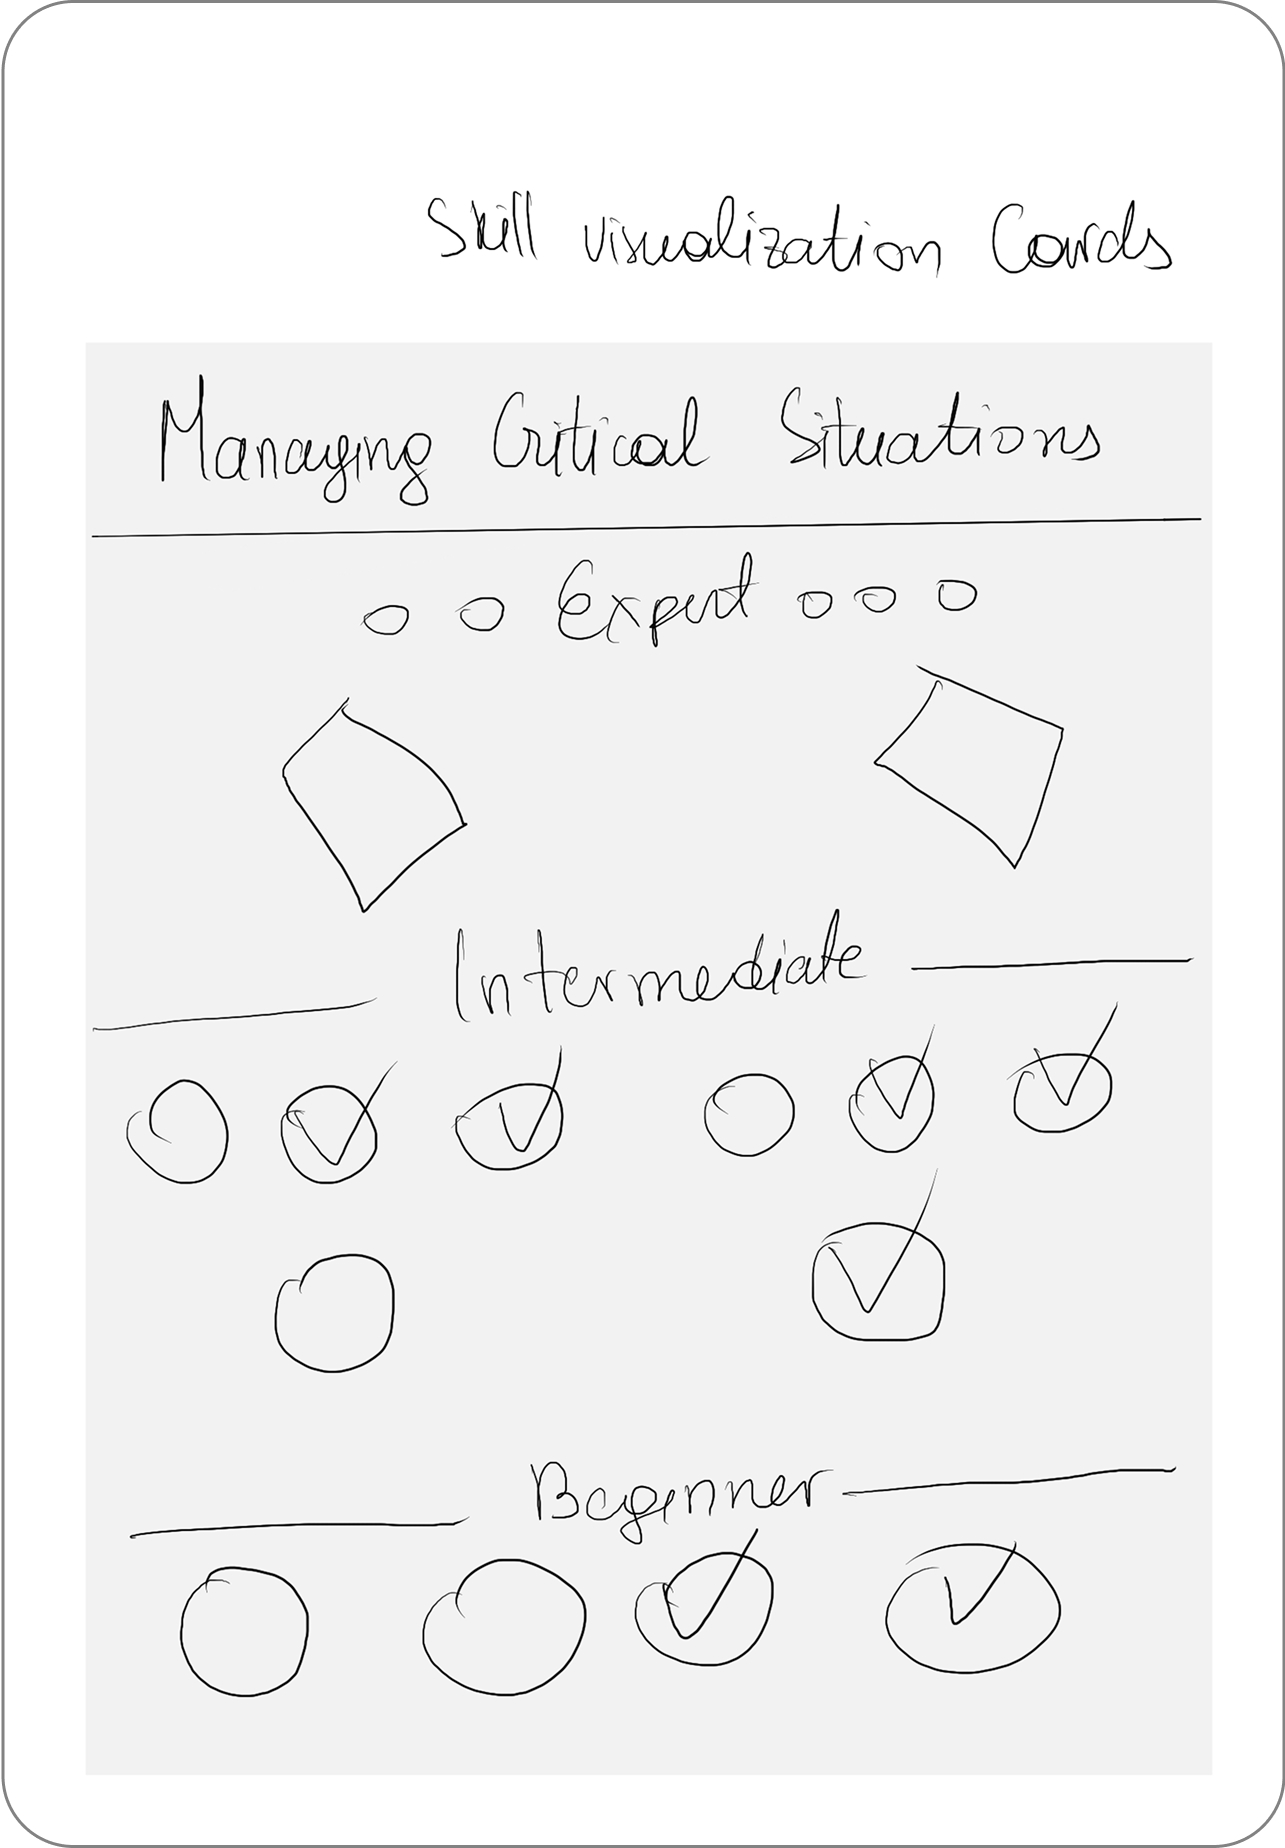 Skill visualization Cards
Managing Critical Situations
Expert
Intermediate
Beginner